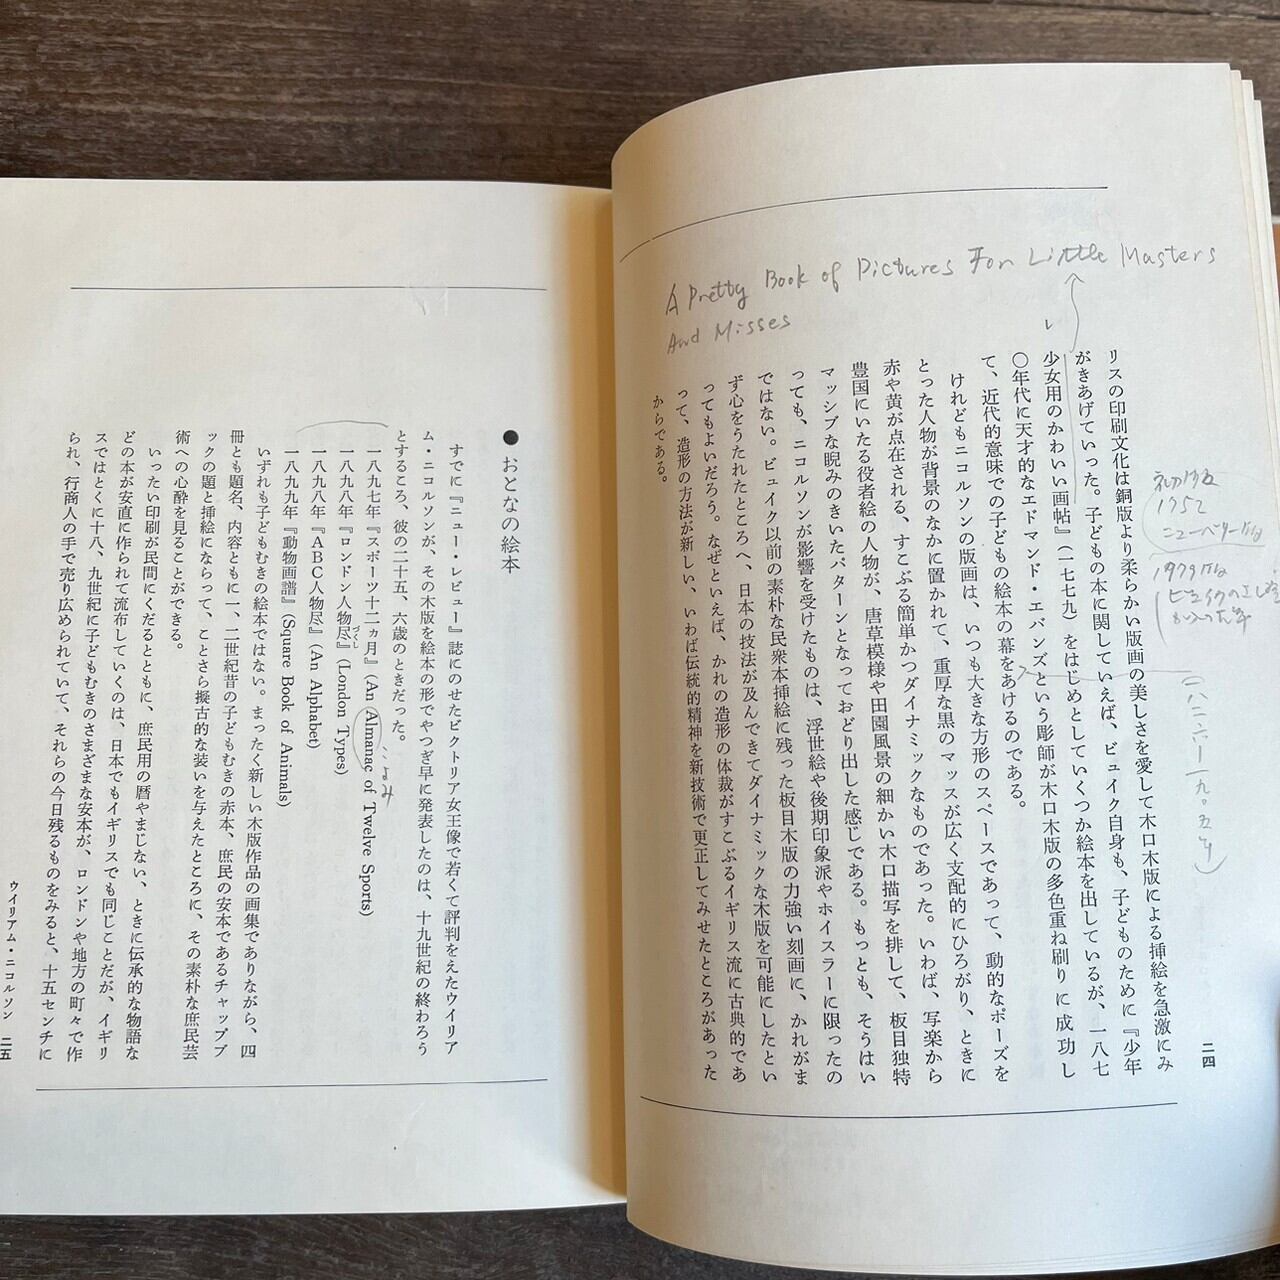 A Pretty Book of Pictures For Little Masters
And Misses
リスの印刷文化は銅版より柔らかい版画の美しさを愛して木口木版による挿絵を急激にみ
がきあげていった。子どもの本に関していえば、ビュイク自身も、子どものために『少年
少女用のかわいい画帖』(一七七九)をはじめとしていくつか絵本を出しているが、一八七
〇年代に天才的なエドマンド・エバンズという彫師が木口木版の多色重ね刷りに成功し
て、近代的意味での子どもの絵本の幕をあけるのである。
けれどもニコルソンの版画は、いつも大きな方形のスペースであって、動的なポーズを
とった人物が背景のなかに置かれて、重厚な黒のマッスが広く支配的にひろがり、ときに
赤や黄が点在される、すこぶる簡単かつダイナミックなものであった。いわば、写楽から
豊国にいたる役者絵の人物が、唐草模様や田園風景の細かい木口描写を排して、板目独特
マッシブな睨みのきいたパターンとなっておどり出した感じである。もっとも、そうはい
っても、ニコルソンが影響を受けたものは、浮世絵や後期印象派やホイスラーに限ったの
ではない。ビュイク以前の素朴な民衆本挿絵に残った板目木版の力強い刻画に、かれがま
ず心をうたれたところへ、日本の技法が及んできてダイナミックな木版を可能にしたとい
ってもよいだろう。なぜといえば、かれの造形の体裁がすこぶるイギリス流に古典的であ
って、造形の方法が新しい、いわば伝統的精神を新技術で更正してみせたところがあった
からである。
1752
ニューベリー
1979
(一八二六ー一九〇五年)
二四
●おとなの絵本
すでに『ニュー・レビュー』誌にのせたビクトリア女王像で若くて評判をえたウイリア
ム・ニコルソンが、その木版を絵本の形でやつぎ早に発表したのは、十九世紀の終わろう
とするころ、彼の二十五、六歳のときだった。
一八九七年『スポーツ十二ヵ月』(An Almanac of Twelve Sports)
こよみ
一八九八年『ロンドン人物尽』(London Types)
づくし
一八九八年『ABC人物尽』(An Alphabet)
一八九九年『動物画譜』(Square Book of Animals)
いずれも子どもむきの絵本ではない。まったく新しい木版作品の画集でありながら、四
冊とも題名、内容ともに一、二世紀昔の子どもむきの赤本、庶民の安本であるチャップブ
ックの題と挿絵にならって、ことさら擬古的な装いを与えたところに、その素朴な庶民芸
術への心酔を見ることができる。
いったい印刷が民間にくだるとともに、庶民用の暦やまじない、ときに伝承的な物語な
どの本が安直に作られて流布していくのは、日本でもイギリスでも同じことだが、イギリ
スではとくに十八、九世紀に子どもむきのさまざまな安本が、ロンドンや地方の町々で作
られ、行商人の手で売り広められていて、それらの今日残るものをみると、十五センチに
ウイリアム・ニコルソン 二五